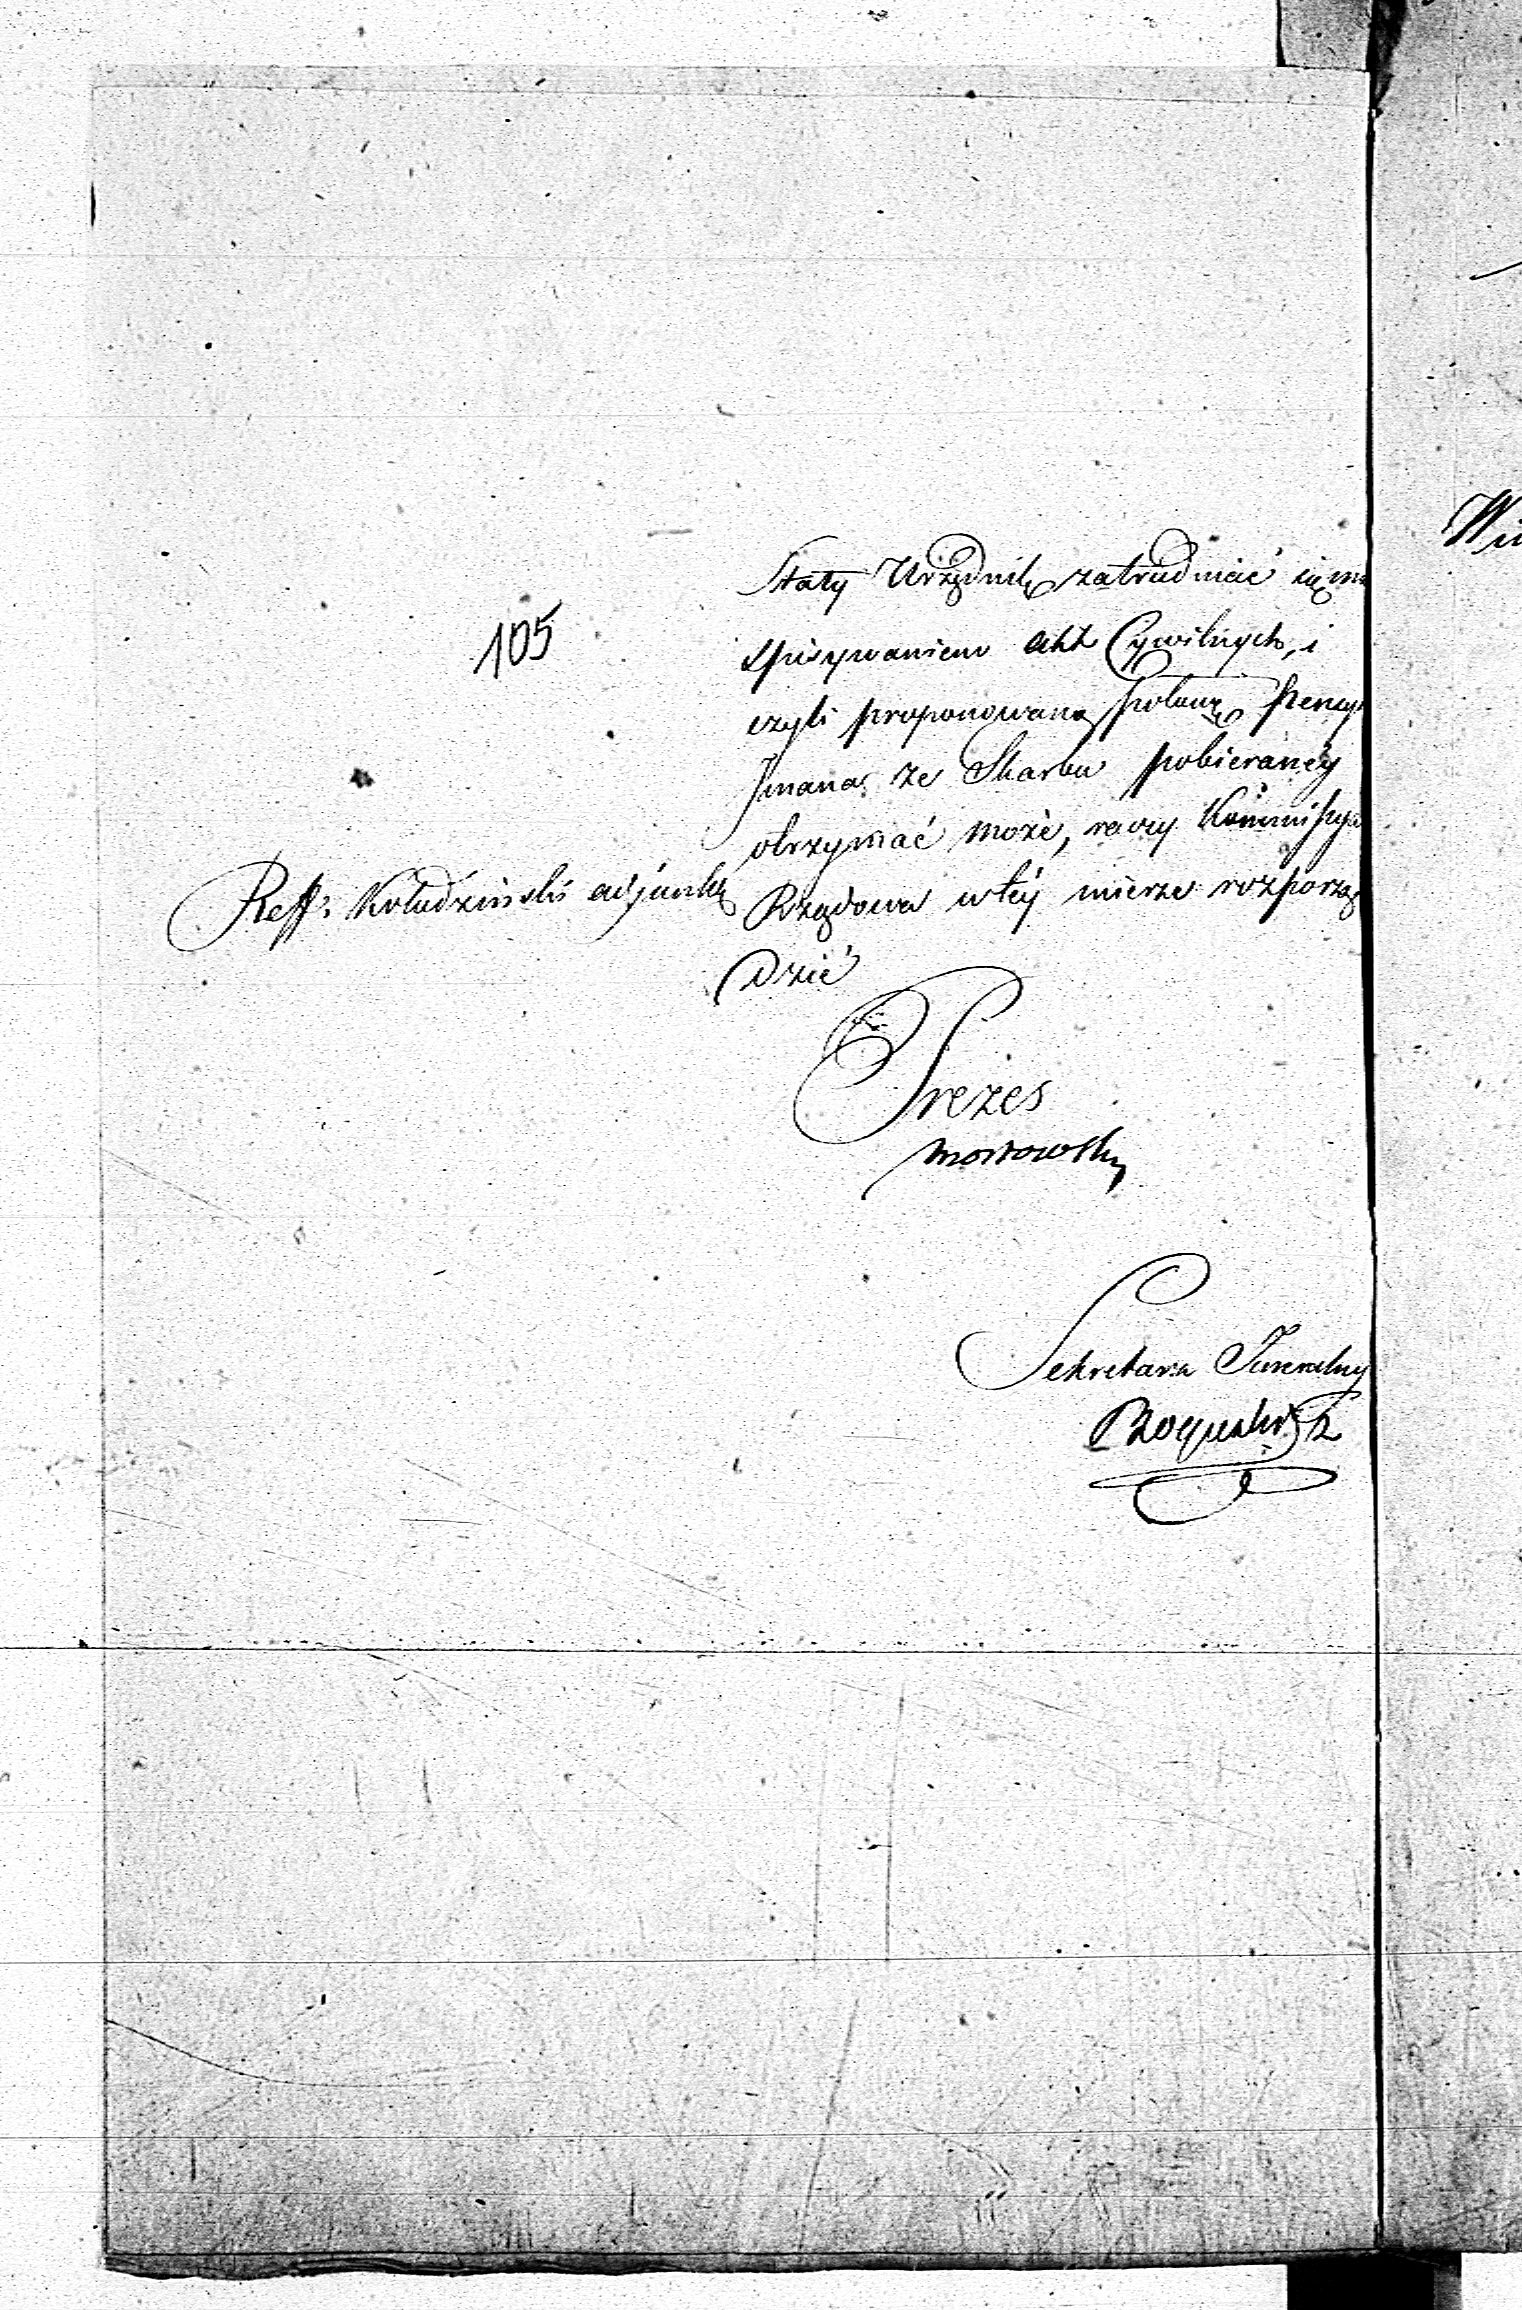 Stały Urzędnik zatrudniać się m
105
spisywaniem akt Cywilnych, i
czyli proponowaną połowę pensyi
Jmana ze Skarbu pobieraney
otrzymać może, raczy Kommissya
Reff: Kołudzinski adjunkt
Rządowa w tey mierze rozporzą
dzić
Prezes
Sekretarz Jeneralny
Wi